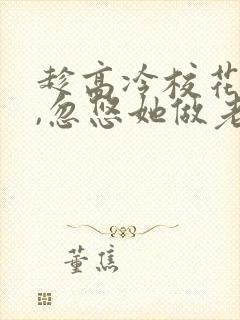 趁高冷校花
,忽悠她做老
董焦